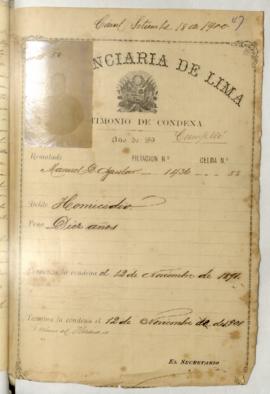 Setiembre 18 de 1900
47
NCIARIA DE LIMA
TIMONIO DE CONDENA
Año de 189
Cumplió
Rematado FILIACION N.º CELDA N.º
Manuel D. 1436
Delito Homicidio
Pena Diez años
la condena el 12 de Noviembre de 1891
Termina la condena el 12 de Noviembre de 1901
EL SECRETARIO